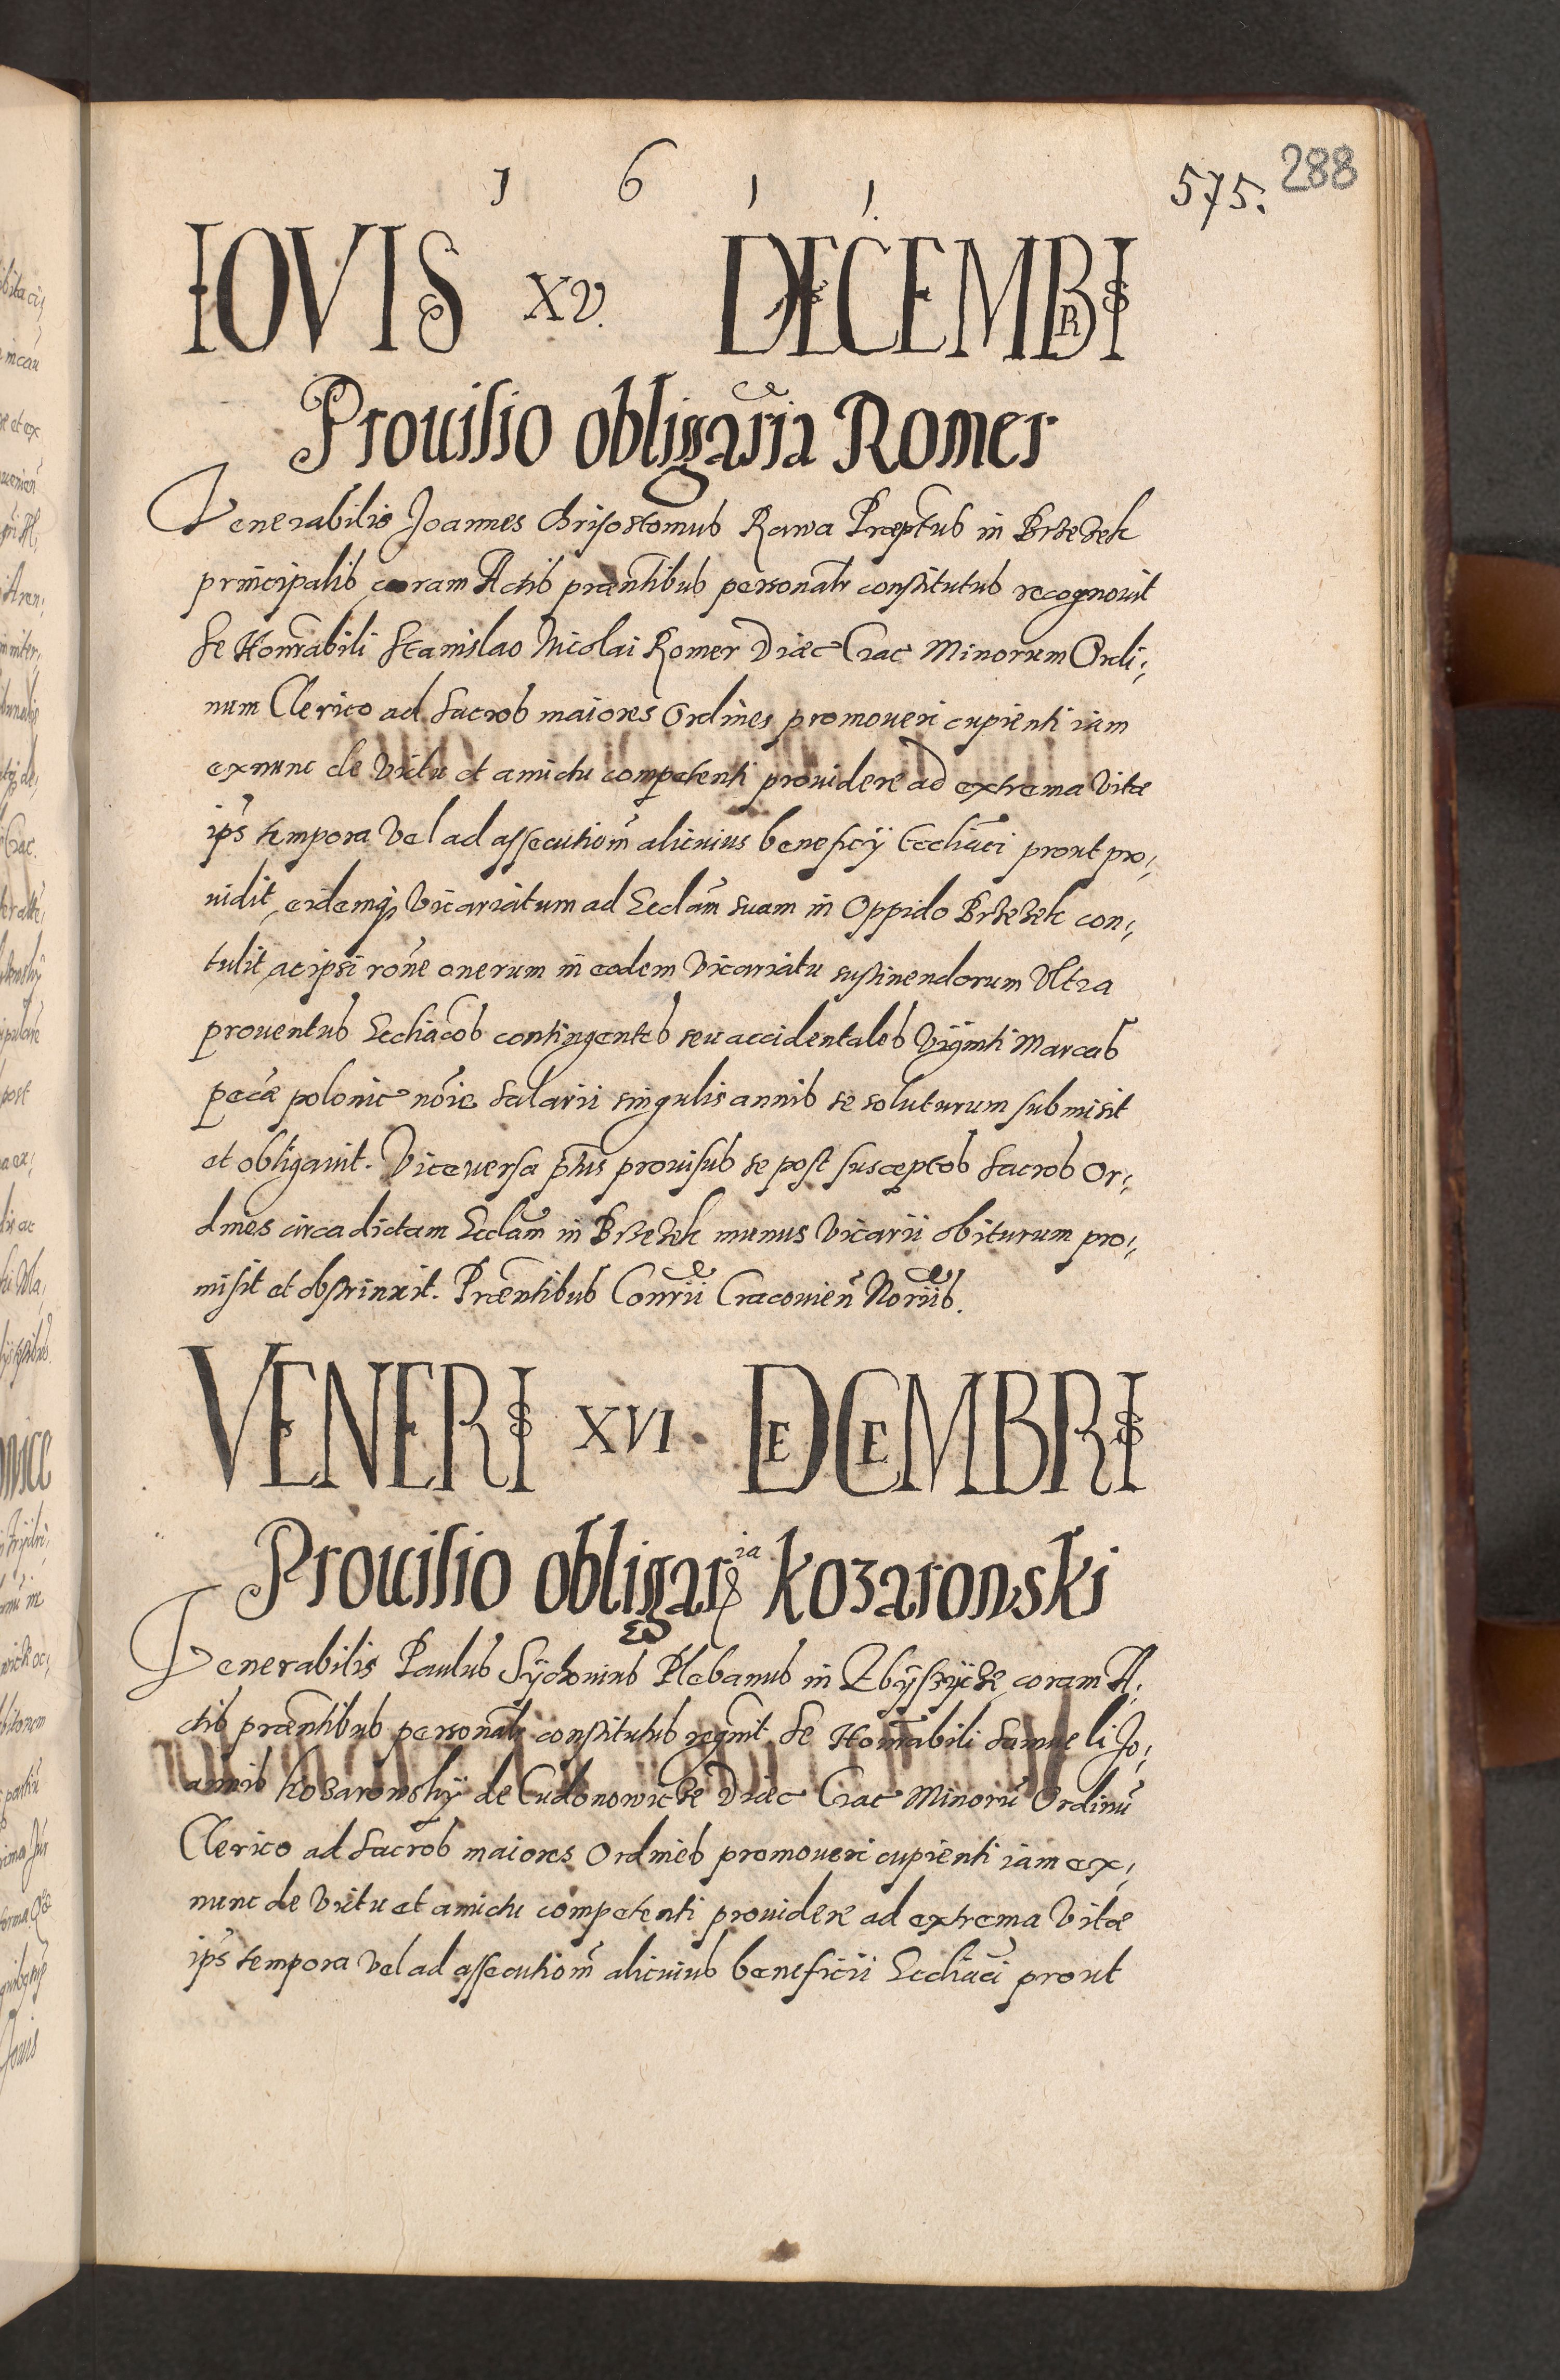 1 6 1 1.
575. 288
IOVIS XV. DECEMBRIS
Prouisio obligaria Romer
Venerabilis Joannes Chrisostomus Rawa Præptus in Brzezek
principalis coram Actis præntibus personalr constitutus recognouit
se Honrabili Stanislao Nicolai Romer Diæc Crac Minorum Ordi,
num Clerico ad sacros maiores Ordines promoueri cupienti iam
exnunc de victu et amictu competenti prouidere ad extrema vitæ
ips tempora vel ad assecutiom̄ alicuius beneficÿ Ecchiaci prout pro,
uidit, eidemq; vicariatum ad Ecclām suam in Oppido Brzezek con,
tulit, ac ipsi rōne onerum in eodem Vicariatu sustinendorum Vltra
prouentus Ecchiacos contingentes seu accidentales viginti Marcas
pecæ polonic nōie salarii singulis annis se soluturum submisit
et obligauit. Viceuersa ptus prouisus se post susceptos sacros Or,
dines circa dictam Ecclām in Brzezek munus vicarii obiturum pro,
misit et obstrinxit. Præntibus Conrii Cracouien̄ Noriis.
VENERIS XVI. DECEMBRIS
Prouisio obligaria Kozarowski
Venerabilis Paulus Sÿchouius Plebanus in Zbÿszÿcze coram A,
ctis præntibus personalr constitutus regnit se Honrabili Samueli Jo,
annis Kozarowskÿ de Cudonowicze Diæc Crac Minorū Ordinū
Clerico ad sacros maiores Ordines promoueri cupienti iam ex,
nunc de victu et amictu competenti prouidere ad extrema vitæ
ips tempora vel ad assecutiom̄ alicuius beneficii Ecchiaci prout